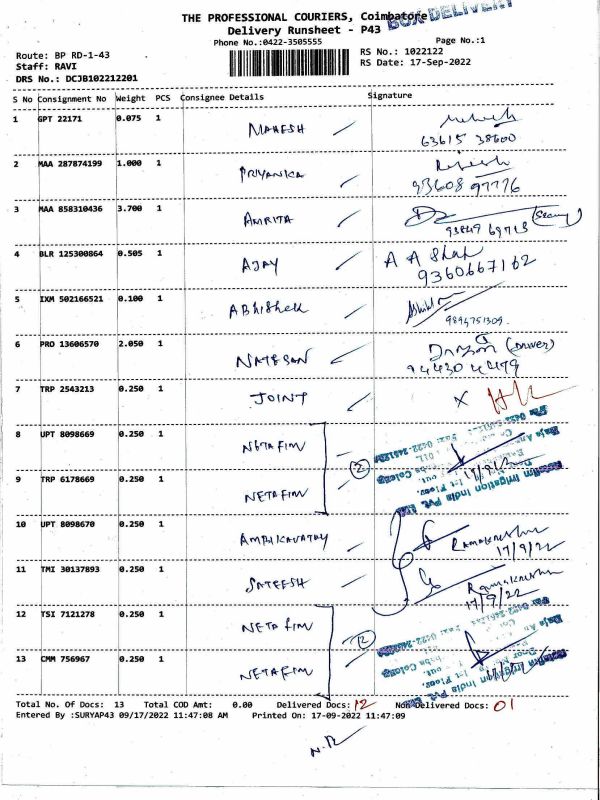 THE PROFESSIONAL COURIERS, Coimbatore
BOX DELIVERY
Delivery Runsheet - P43
Phone No.:0422-3505555
Page No.:1
Route: BP RD-1-43
RS No.: 1022122
Staff: RAVI
RS Date: 17-Sep-2022
DRS No.: DCJB102212201
S No Consignment No Weight PCS Consignee Details Signature
1 GPT 22171 0.075 1 MAHESH
63615 38600
2 MAA 287874199 1.000 1 PRIYANKA
93608 97776
3 MAA 858310436 3.700 1 AMRITA
4 BLR 125300864 0.505 1 AJAY A A Shah
9360667162
5 IXM 502166521 0.100 1 ABhishek
9894751309
6 PRO 13606570 2.050 1 NATESAN (DRIVER)
94430 42479
7 TRP 2543213 0.250 1 JOINT X
8 UPT 8098669 0.250 1 NETAFIM
2
17/9/22
9 TRP 6178669 0.250 1 NETAFIM
10 UPT 8098670 0.250 1 Ramakrishna
17/9/22
11 TMI 30137893 0.250 1 SATEESH Ramakrishna
17/9/22
12 TSI 7121278 0.250 1 NETAFIM
2
13 CMM 756967 0.250 1 NETAFIM
Total No. Of Docs: 13 Total COD Amt: 0.00 Delivered Docs: 12 Non-Delivered Docs: 01
Entered By :SURYAP43 09/17/2022 11:47:08 AM Printed On: 17-09-2022 11:47:09